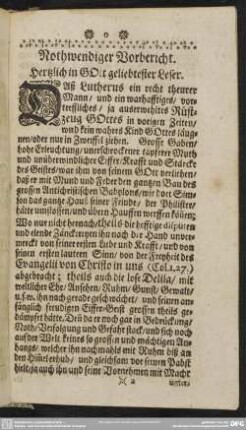 Nothwendiger Vorbericht.
Hertzlich in GOtt geliebtester Leser.
DAß Lutherus ein recht theurer
Mann/ und ein warhafftiges/ vor-
treffliches/ ja auserwehltes Rüst-
zeug GOttes in vorigen Zeiten/
wird kein wahres Kind GOttes läug-
nen/ oder nur in Zweiffel ziehen. Grosse Gaben/
hohe Erleuchtung/ unerschrockner tapferer Muth
und unüberwindlicher Eiffer/ Krafft und Stärcke
des Geistes/ war ihm von seinem GOtt verliehen/
daß er mit Mund und Feder den gantzen Bau des
grossen Antichristischen Babylons/ wie dort Sim-
son das gantze Haus seiner Feinde/ der Philister/
hätte umstossen/ und übern Hauffen werffen können;
Wo nur nicht hernach theils die hefftige disputen
und elende Zänckereyen ihn nach der Hand unver-
merckt von seiner ersten Liebe und Krafft/ und von
seinen ersten lautern Sinn/ von der Freyheit des
Evangelii von Christo in uns (Col.1,27.)
abgebracht; theils auch die lose Delila/ mit
weltlicher Ehr/ Ansehen/ Ruhm/ Gunst/ Gewalt/
u.s.w. ihn nach gerade geschwächet/ und seinen an-
fänglich freudigen Eiffer-Geist grossen theils ge-
dämpfet hätte. Den da er noch gar in Bedrückung/
Noth/ Verfolgung und Gefahr stack/ und sich noch
auf der Welt keines so grossen und mächtigen An-
hangs/ welcher ihn nachmahls mit Ruhm biß an
den Himmel erhub/ und gleichsam vor seinem Pabst
hielt/ ja auch ihn und seine Vornehmen mit Macht
)( 2 unter-